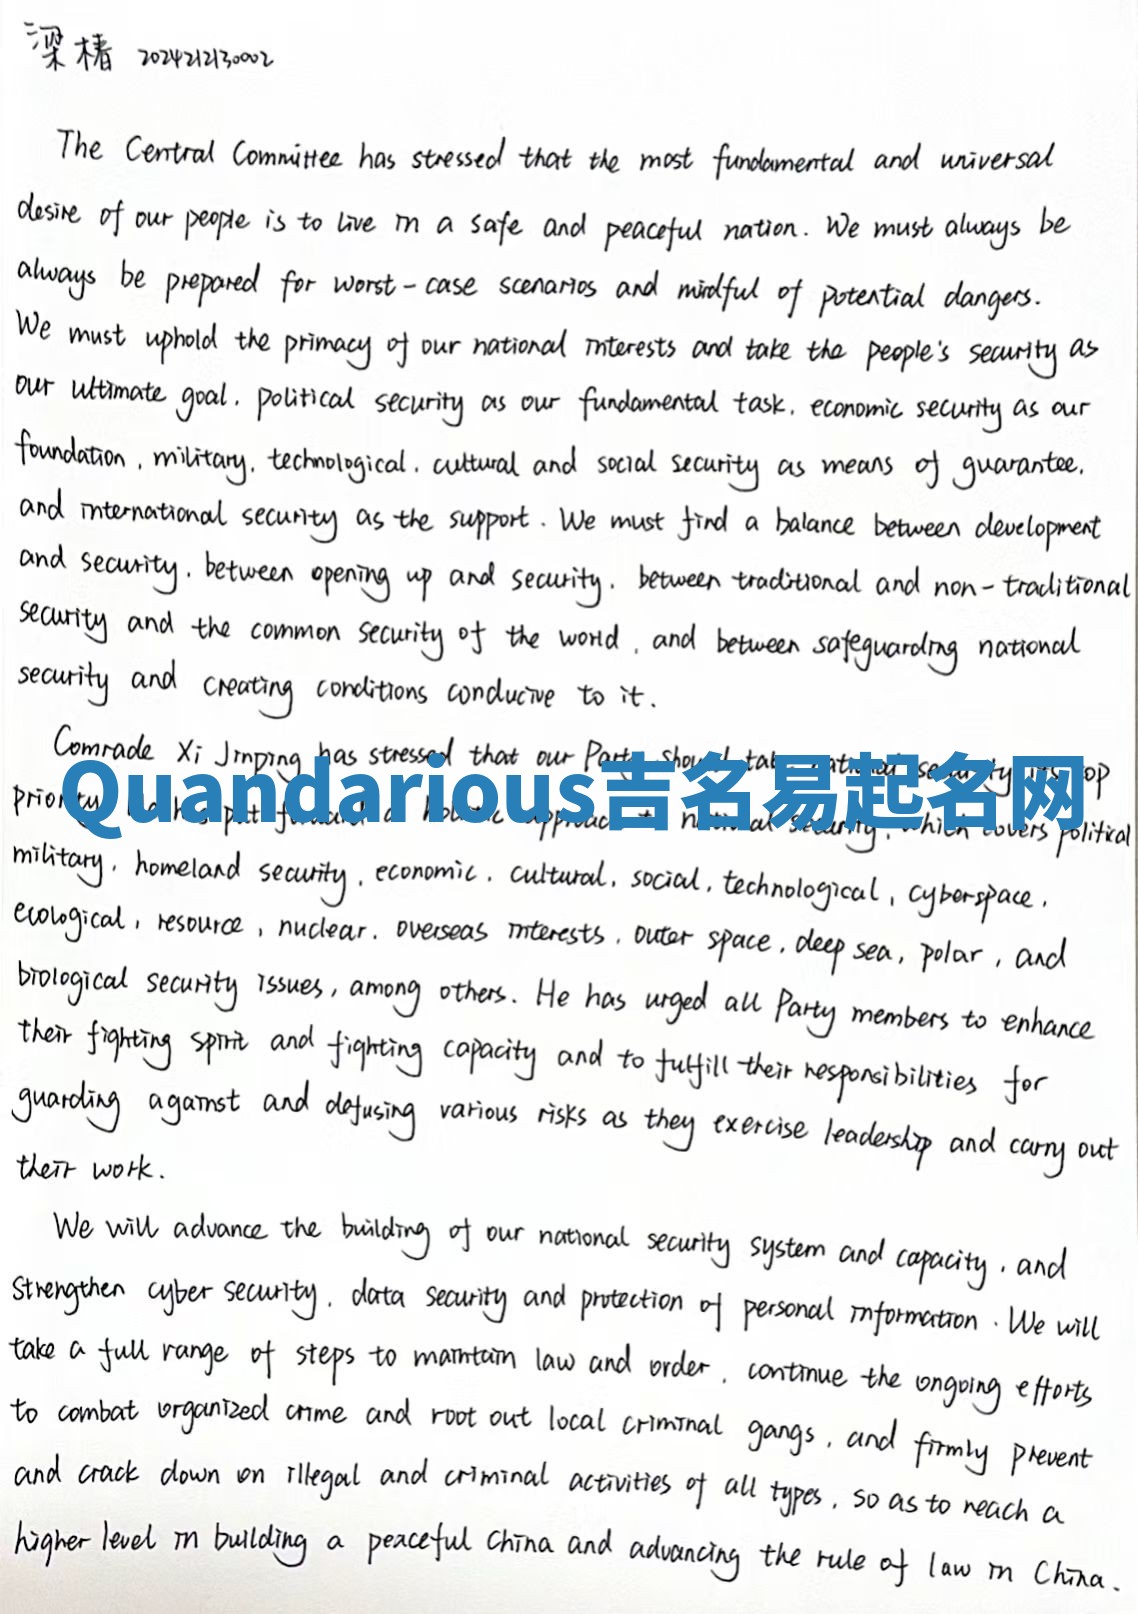 梁椿 2024212130002
The Central Committee has stressed that the most fundamental and universal
desire of our people is to live in a safe and peaceful nation. We must always be
always be prepared for worst-case scenarios and mindful of potential dangers.
We must uphold the primacy of our national interests and take the people's security as
our ultimate goal, political security as our fundamental task, economic security as our
foundation, military, technological, cultural and social security as means of guarantee,
and international security as the support. We must find a balance between development
and security, between opening up and security, between traditional and non-traditional
security and the common security of the world, and between safeguarding national
security and creating conditions conducive to it.
Comrade Xi Jinping has stressed that our Party should take national security its top
Quandarious吉名易起名网
priority. He has put forward a holistic approach to national security, which covers political
military, homeland security, economic, cultural, social, technological, cyberspace,
ecological, resource, nuclear, overseas interests, outer space, deep sea, polar, and
biological security issues, among others. He has urged all Party members to enhance
their fighting spirit and fighting capacity and to fulfill their responsibilities for
guarding against and defusing various risks as they exercise leadership and carry out
their work.
We will advance the building of our national security system and capacity, and
strengthen cyber security, data security and protection of personal information. We will
take a full range of steps to maintain law and order, continue the ongoing efforts
to combat organized crime and root out local criminal gangs, and firmly prevent
and crack down on illegal and criminal activities of all types, so as to reach a
higher level in building a peaceful China and advancing the rule of law in China.